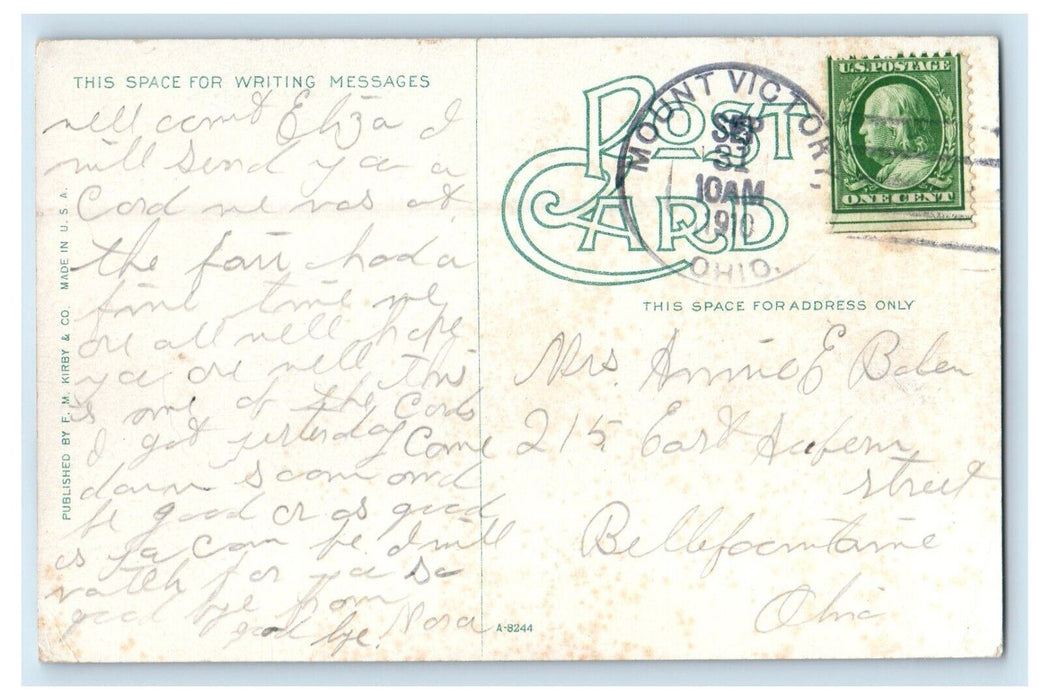 THIS SPACE FOR WRITING MESSAGES
well Eliza I
will send you a
Card we was at
the fair had a
fine time we
are all well hope
you are well this
is one of the Cards
I got yesterday Come
down soon and
be good or as good
as you can be I will
watch for you so
good bye from
good bye. Nora
PUBLISHED BY F. M. KIRBY & CO. MADE IN U.S.A.
A-8244
POST
CARD
MOUNT VICTORY,
SEP
10AM
1910
OHIO.
U.S. POSTAGE
ONE CENT
THIS SPACE FOR ADDRESS ONLY
Mrs. Annie E
215 East
street
Bellefountaine
Ohio